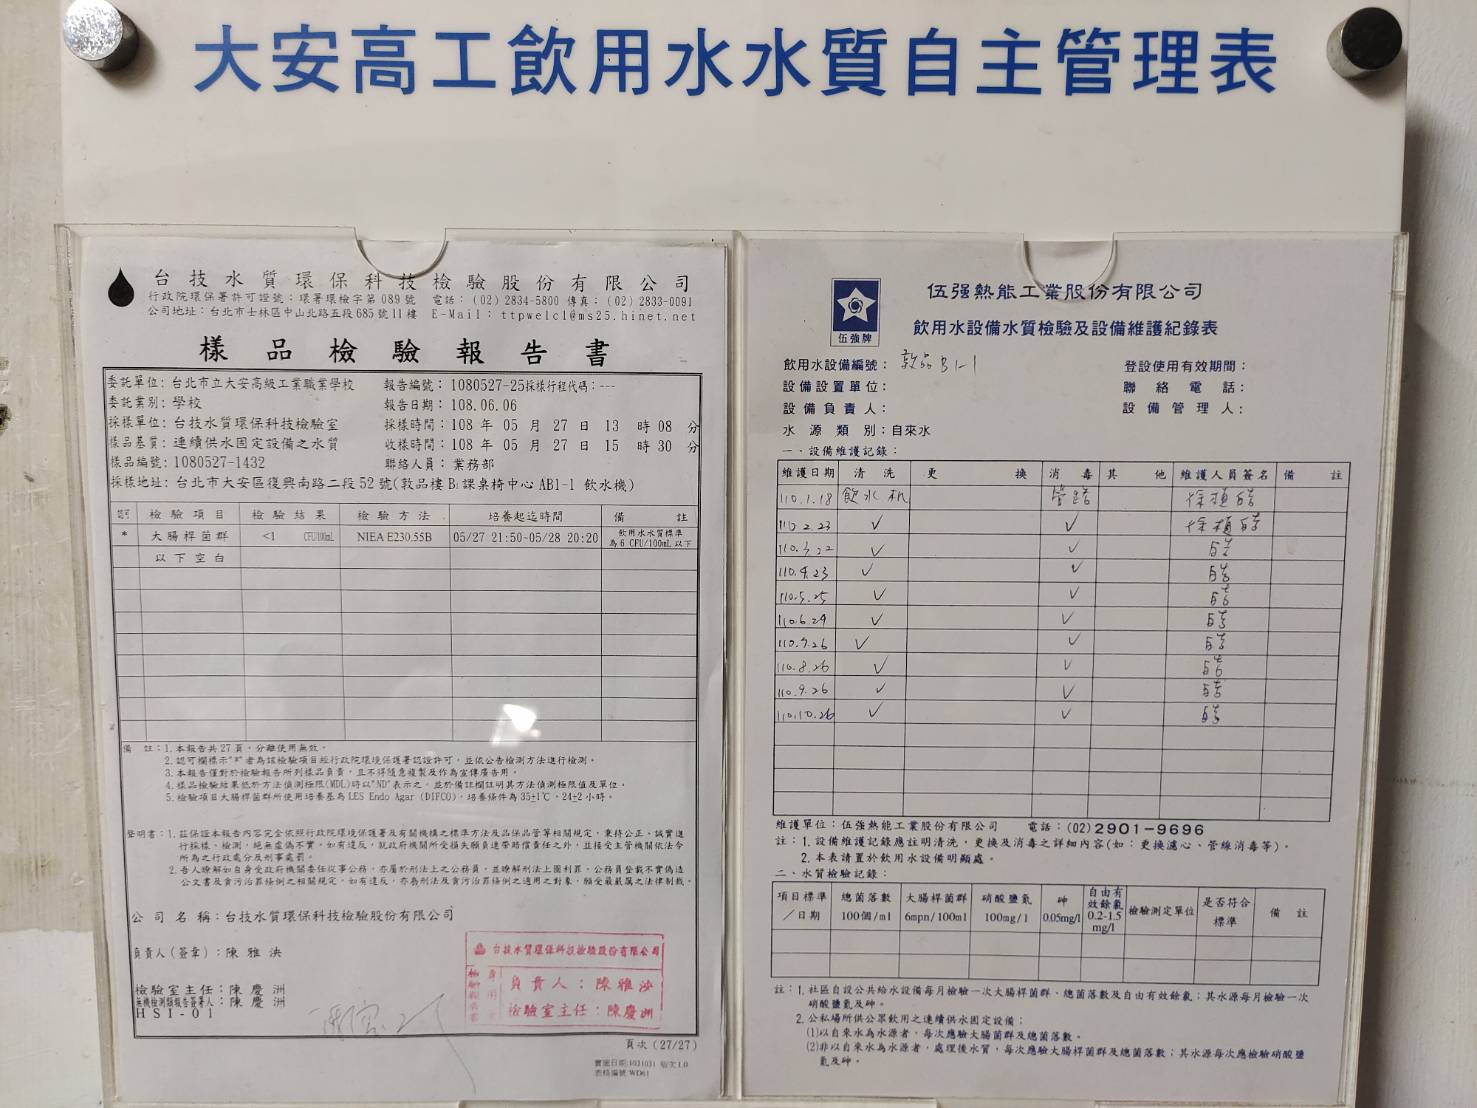 大安高工飲用水水質自主管理表
台技水質環保科技檢驗股份有限公司
行政院環保署許可證號：環署環檢字第089號 電話：(02)2834-5800 傳真：(02)2833-0091
公司地址：台北市士林區中山北路五段685號11樓 E-Mail：ttpwelcl@ms25.hinet.net
樣品檢驗報告書
委託單位：台北市立大安高級工業職業學校 報告編號：1080527-25採樣行程代碼：---
委託業別：學校 報告日期：108.06.06
採樣單位：台技水質環保科技檢驗室 採樣時間：108 年 05 月 27 日 13 時 08 分
樣品基質：連續供水固定設備之水質 收樣時間：108 年 05 月 27 日 15 時 30 分
樣品編號：1080527-1432 聯絡人員：業務部
採樣地址：台北市大安區復興南路二段52號(敦品樓B1課桌椅中心AB1-1 飲水機)
認可 檢驗項目 檢驗結果 檢驗方法 培養起迄時間 備註
* 大腸桿菌群 <1 CFU/100mL NIEA E230.55B 05/27 21:50~05/28 20:20 飲用水水質標準
為6 CFU/100mL以下
以下空白
備 註：1.本報告共27頁，分離使用無效。
2.認可欄標示"*"者為該檢驗項目經行政院環境保護署認證許可，並依公告檢測方法進行檢測。
3.本報告僅對於檢驗報告所列樣品負責，且不得隨意複製及作為宣傳廣告用。
4.樣品檢驗結果低於方法偵測極限(MDL)時以"ND"表示之，並於備註欄註明其方法偵測極限值及單位。
5.檢驗項目大腸桿菌群所使用培養基為LES Endo Agar (DIFCO)，培養條件為35±1℃，24±2小時。
聲明書：1.茲保證本報告內容完全依照行政院環境保護署及有關機構之標準方法及品保品管等相關規定，秉持公正、誠實進
行採樣、檢測，絕無虛偽不實。如有違反，就政府機關所受損失願負連帶賠償責任之外，並接受主管機關依法令
所為之行政處分及刑事處罰。
2.吾人瞭解如自身受政府機關委任從事公務，亦屬於刑法上之公務員，並瞭解刑法上圖利罪、公務員登載不實偽造
公文書及貪污治罪條例之相關規定，如有違反，亦為刑法及貪污治罪條例之適用之對象，願受最嚴厲之法律制裁。
公司名稱：台技水質環保科技檢驗股份有限公司
負責人(簽章)：陳雅泱
檢驗室主任：陳慶洲
無機檢測類報告簽署人：陳慶洲
HSI-01
台技水質環保科技檢驗股份有限公司
負責人：陳雅泱
檢驗室主任：陳慶洲
頁次(27/27)
實施日期:1031031 版次1.0
表格編號:WD61
伍強牌
伍强熱能工業股份有限公司
飲用水設備水質檢驗及設備維護紀錄表
飲用水設備編號：敦品B1-1 登設使用有效期間：
設備設置單位： 聯絡電話：
設備負責人： 設備管理人：
水源類別：自來水
一、設備維護記錄：
維護日期 清洗 更換 消毒 其他 維護人員簽名 備註
110.1.18 飲水机 管路
110.2.23 ✓ ✓
110.3.22 ✓ ✓
110.4.23 ✓ ✓
110.5.25 ✓ ✓
110.6.24 ✓ ✓
110.7.26 ✓ ✓
110.8.26 ✓ ✓
110.9.26 ✓ ✓
110.10.26 ✓ ✓
維護單位：伍强熱能工業股份有限公司 電話：(02)2901-9696
註：1.設備維護記錄應註明清洗，更換及消毒之詳細內容(如：更換濾心、管線消毒等)。
2.本表請置於飲用水設備明顯處。
二、水質檢驗記錄：
項目標準／日期 總菌落數 100個/ml 大腸桿菌群 6mpn/100ml 硝酸鹽氮 100mg/l 砷 0.05mg/l 自由有效餘氯 0.2-1.5 mg/l 檢驗測定單位 是否符合標準 備註
註：1.社區自設公共給水設備每月檢驗一次大腸桿菌群、總菌落數及自由有效餘氯；其水源每月檢驗一次
硝酸鹽氮及砷。
2.公私場所供公眾飲用之連續供水固定設備：
(1)以自來水為水源者，每次應驗大腸菌群及總菌落數。
(2)非以自來水為水源者，處理後水質，每次應驗大腸桿菌群及總菌落數；其水源每次應檢驗硝酸鹽
氮及砷。